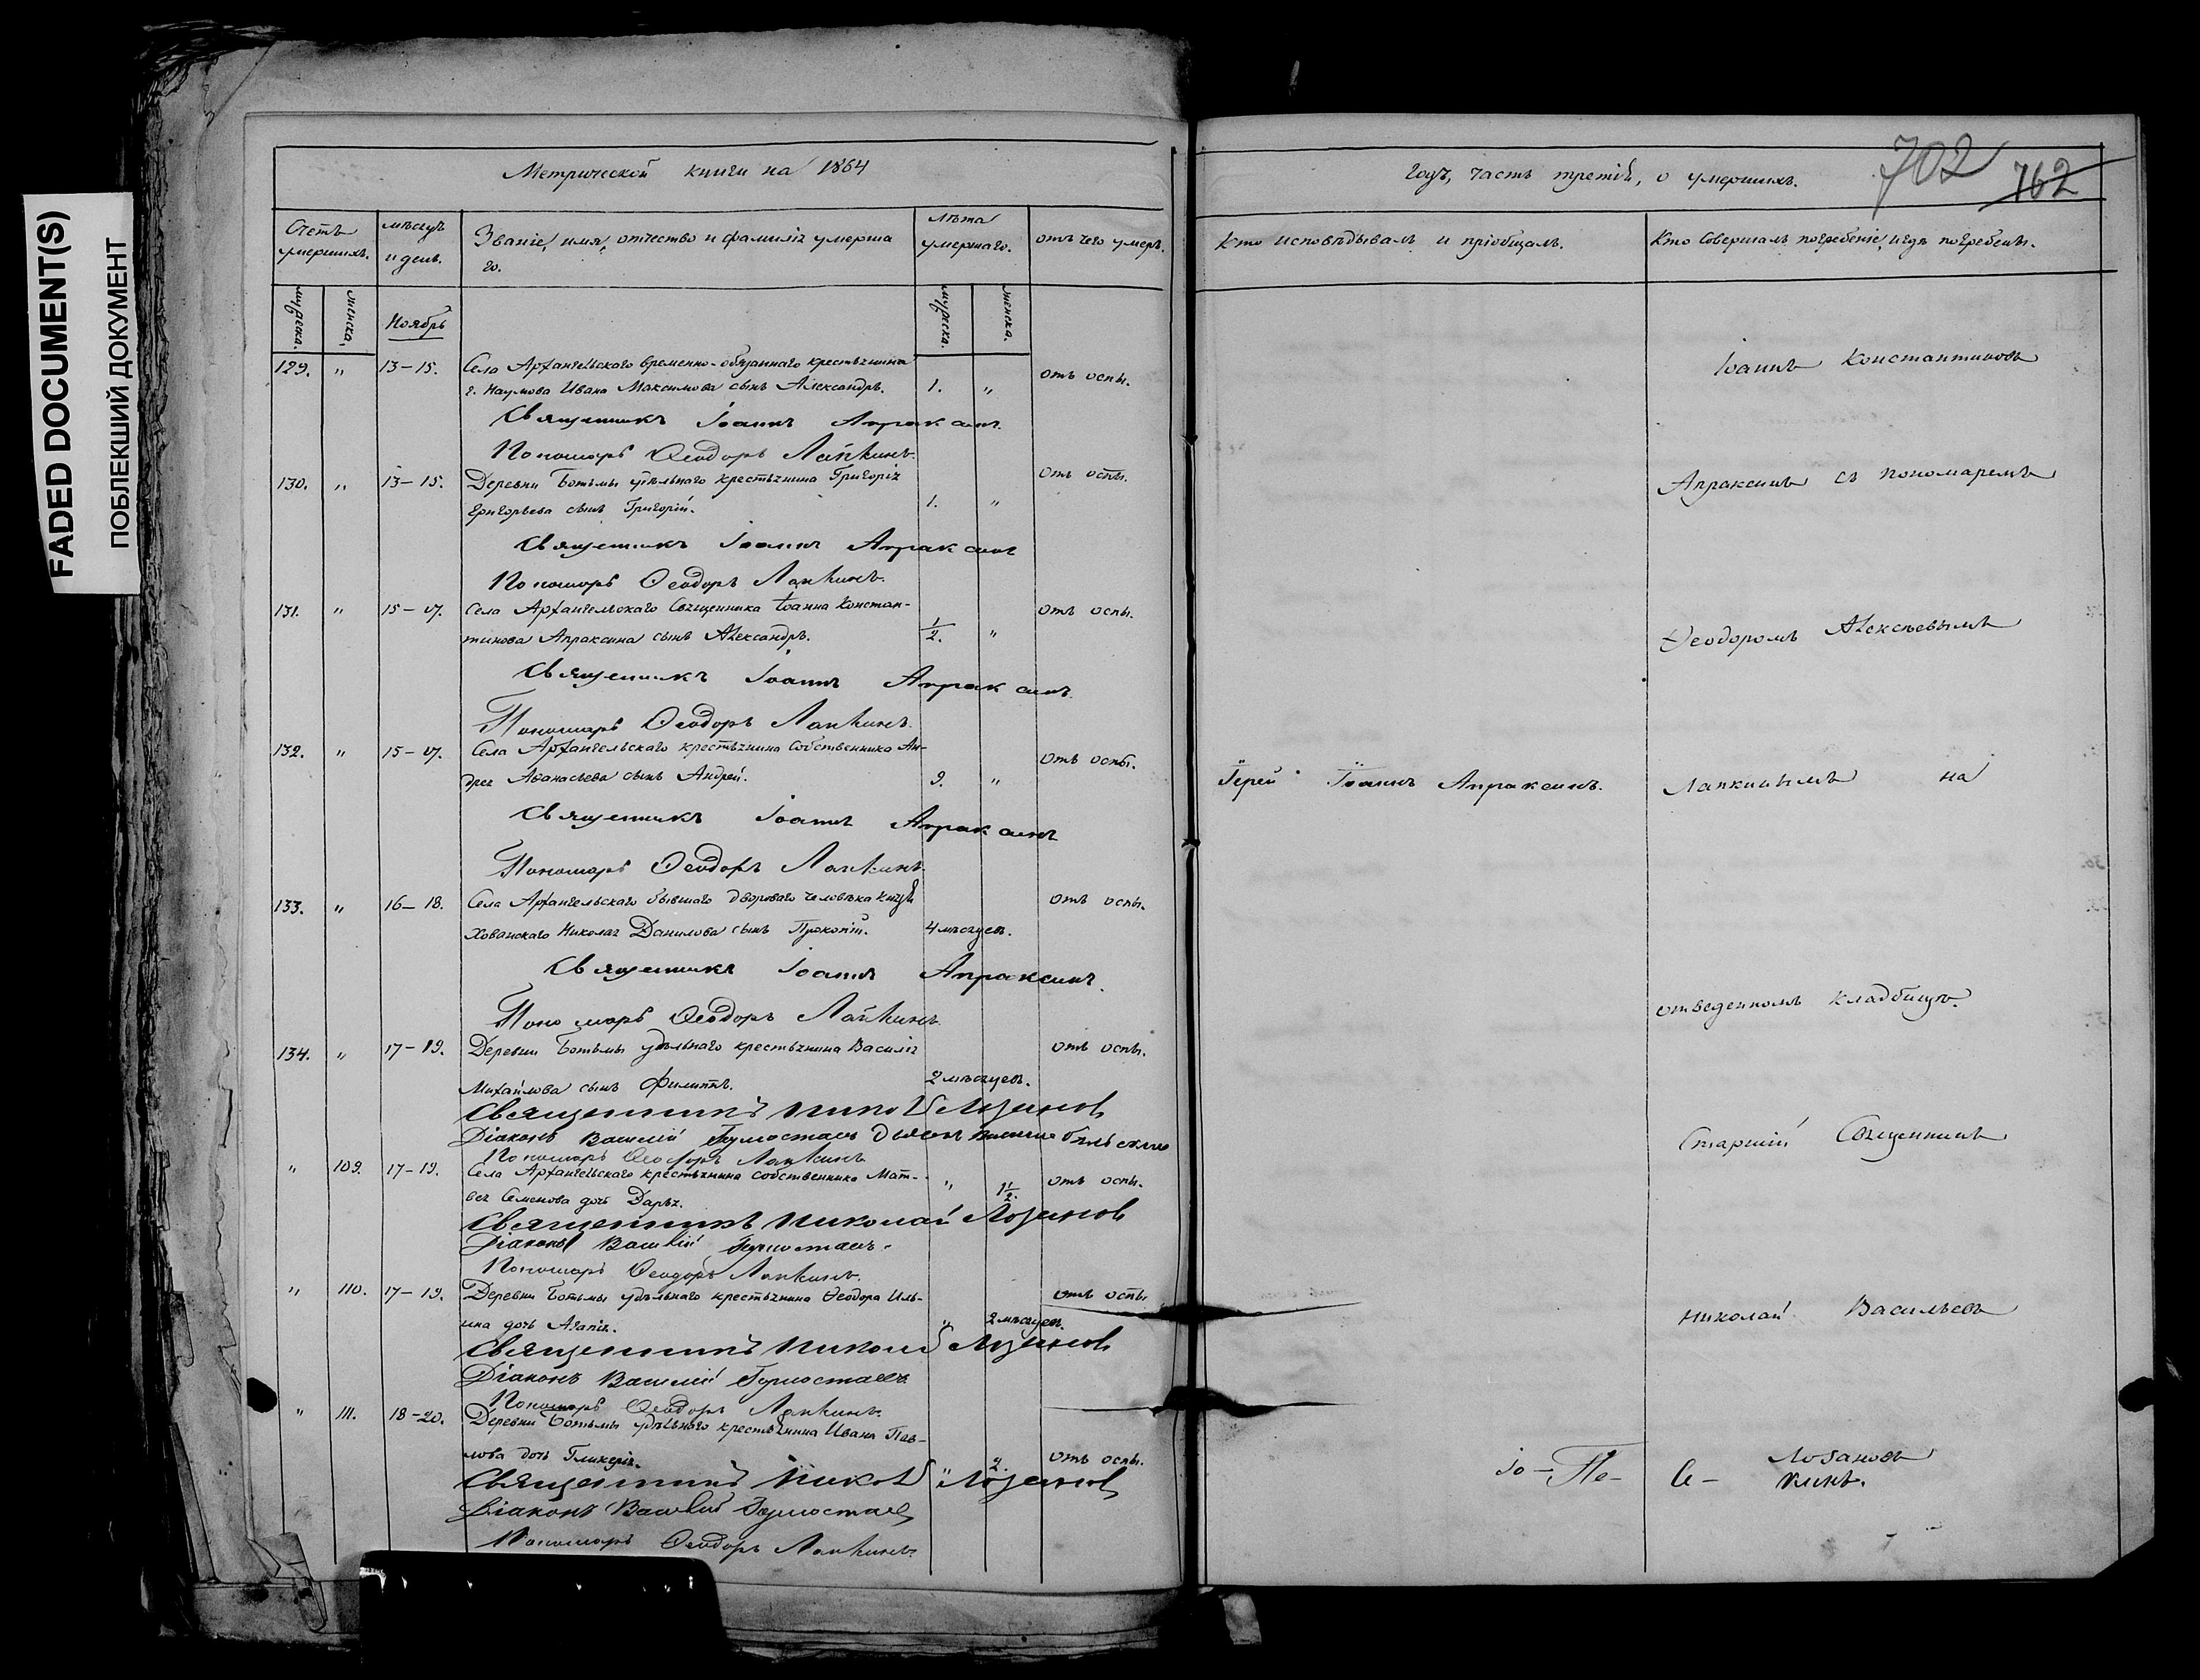 FADED DOCUMENT(S)
ПОБЛЕКШИЙ ДОКУМЕНТ
Метрической книги на 1864
Счетъ умершихъ.
мужеска.
женска.
мѣсяцъ и день.
Званіе, имя, отчество и фамилія умерша
го.
Лѣта умершаго.
мужеска.
женска.
отъ чего умеръ.
Ноябрь
129. " 13–15. Села Архангельскаго временно-обязаннаго крестьянина отъ оспы.
г. Наумова Ивана Максимова сынъ Александръ. 1. "
Священникъ Іоаннъ Апраксинъ.
Пономарь Ѳеодоръ Лапкинъ.
130. " 13–15. Деревни Ботьмы удѣльнаго крестьянина Григорія отъ оспы.
Григорьева сынъ Григорій. 1. "
Священникъ Іоаннъ Апраксинъ
Пономарь Ѳеодоръ Лапкинъ.
131. " 15–17. Села Архангельскаго Священника Іоанна Констан- отъ оспы.
тинова Апраксина сынъ Александръ. 1/2. "
Священникъ Іоаннъ Апраксинъ.
Пономарь Ѳеодоръ Лапкинъ.
132. " 15–17. Села Архангельскаго крестьянина Собственника Ан- отъ оспы.
дрея Аѳанасьева сынъ Андрей. 9. "
Священникъ Іоаннъ Апраксинъ
Пономарь Ѳеодоръ Лапкинъ.
133. " 16–18. Села Архангельскаго бывшаго двороваго человѣка Князя отъ оспы.
Хованскаго Николая Данилова сынъ Прокопій. 4 мѣсяцев.
Священникъ Іоаннъ Апраксинъ.
Пономарь Ѳеодоръ Лапкинъ.
134. " 17–19. Деревни Ботьмы удѣльнаго крестьянина Василія отъ оспы.
Михайлова сынъ Филиппъ. 2 мѣсяцев.
Священникъ Николай Лозановъ
Діаконъ Василій Горностаевъ
Пономарь Ѳеодоръ Лапкинъ
" 109. 17–19. Села Архангельскаго крестьянина собственника Мат- отъ оспы.
вея Семенова дочь Дарья. " 1 1/2.
Священникъ Николай Лозановъ
Діаконъ Василій Горностаевъ.
Пономарь Ѳеодоръ Лапкинъ.
" 110. 17–19. Деревни Ботьмы удѣльнаго крестьянина Ѳеодора Иль- отъ оспы
ина дочь Агапія. " 2 мѣсяцев.
Священникъ Николай Лозановъ
Діаконъ Василій Горностаевъ
Пономарь Ѳеодоръ Лапкинъ.
" 111. 18–20. Деревни Ботьмы удѣльнаго крестьянина Ивана Пав-
лова дочь Гликерія. " 2. отъ оспы.
Священникъ Николай Лозановъ
Діаконъ Василій Горностаевъ
Пономарь Ѳеодоръ Лапкинъ.
годъ, часть третія, о умершихъ.
702
762
Кто исповѣдывалъ и пріобщалъ.
Кто совершалъ погребеніе, и гдѣ погребены.
Іоаннъ Константиновъ
Апраксинъ съ пономаремъ
Ѳеодоромъ Алексѣевымъ
Іерей Іоаннъ Апраксинъ.
Лапкинымъ на
отведенномъ кладбищѣ.
Старшій Священникъ
Николай Васильевъ
Лозановъ
Іо– Пе– Се– кинъ.